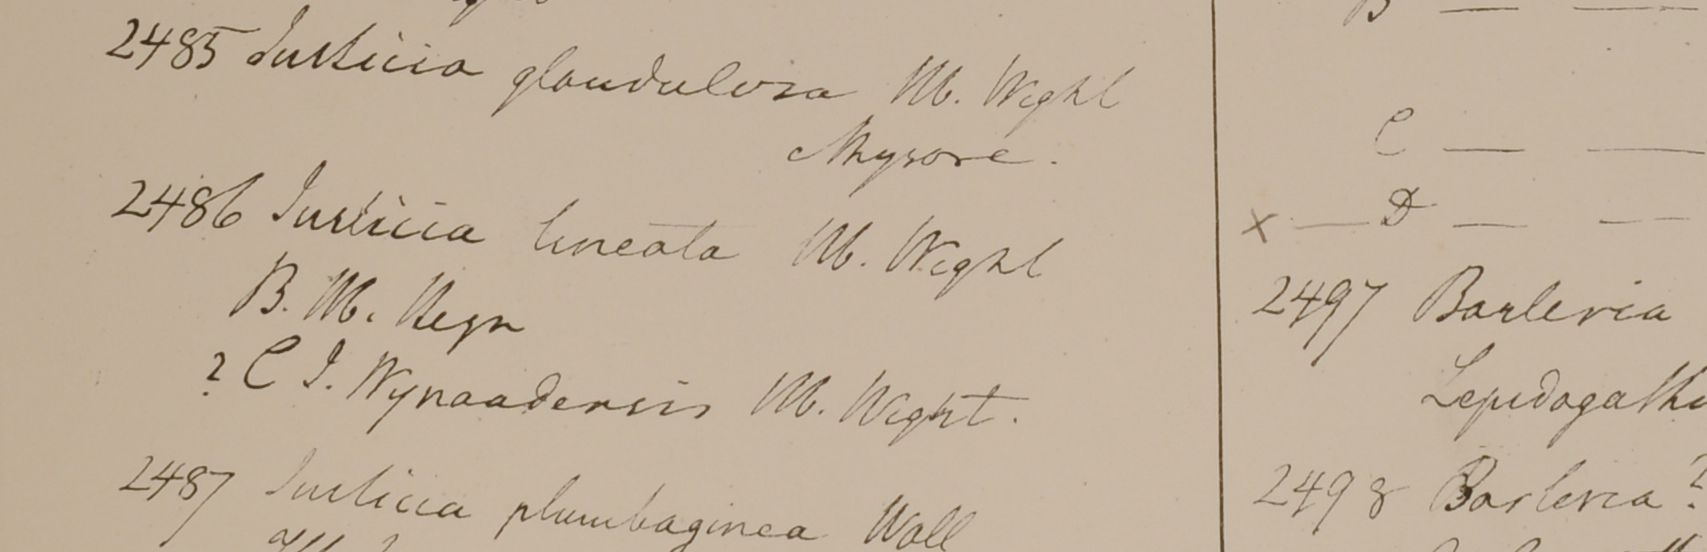 2485 Justicia glandulosa Hb. Wight
Mysore.
2486 Justicia lineata Hb. Wight
B. Hb. Heyn
? C J. Wynaadensis Hb. Wight.
2487 Justicia plumbaginea Wall
B — —
C — —
x — D — —
2497 Barleria
Lepidagathi
2498 Barleria ?